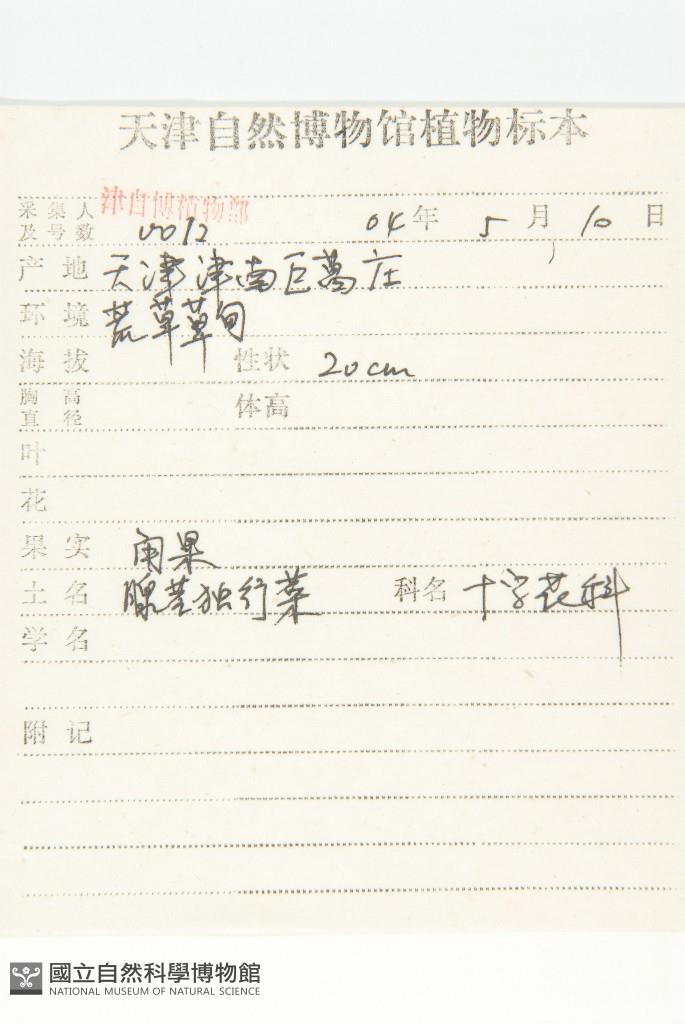 天津自然博物馆植物标本
采集人 津自博植物部
及号数 0012 04年 5月 10日
产地 天津津南巨葛庄
环境 荒草草甸
海拔 性状 20cm
胸高
直径 体高
叶
花
果实 角果
土名 腺茎独行菜 科名 十字花科
学名
附记
國立自然科學博物館
NATIONAL MUSEUM OF NATURAL SCIENCE